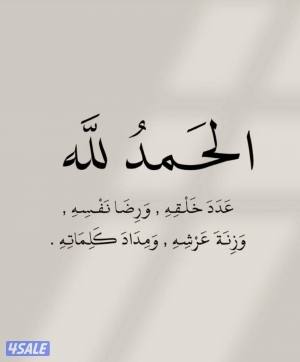 الحَمدُ للَّه
عَدَدَ خَلْقِهِ , وَرِضَا نَفْسِهِ ,
وَزِنَةَ عَرْشِهِ , وَمِدَادَ كَلِمَاتِهِ .
4SALE